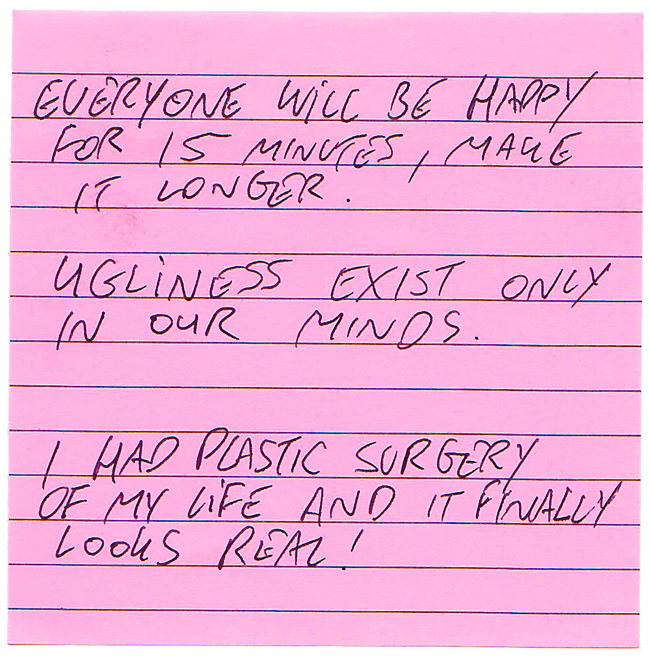 EVERYONE WiLL BE HAPPY
FOR 15 MINUTES, MAKE
IT LONGER.
UGLiNESS EXIST ONLY
IN OUR MINDS.
I HAD PLASTIC SURGERY
OF MY LiFE AND IT FiNALLY
LOOKS REAL!